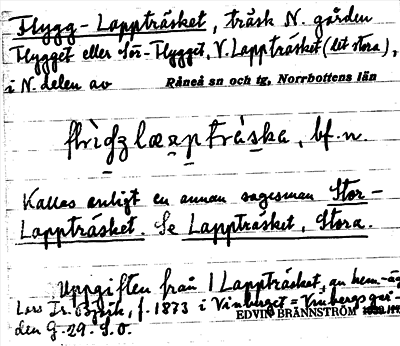 Flygg-Lappträsket, träsk N. gården
Flygget eller Sör-Flygget, V. Lappträsket (det stora),
i N. delen av Råneå sn och tg, Norrbottens län
bf. n.
Kallas enligt en annan sagesman Stor-
Lappträsket. Se Lappträsket, Stora.
Uppgiften från Lappträsket, an hem-äg
Lars f. 1873 i Vinberget = Vinbergsgår-
den G. 29. S.O.
EDVIN BRÄNNSTRÖM